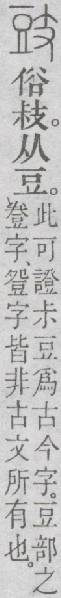 豉
俗𢻃。从豆。
此可證尗豆爲古今字。豆部之
字、字皆非古文所有也。